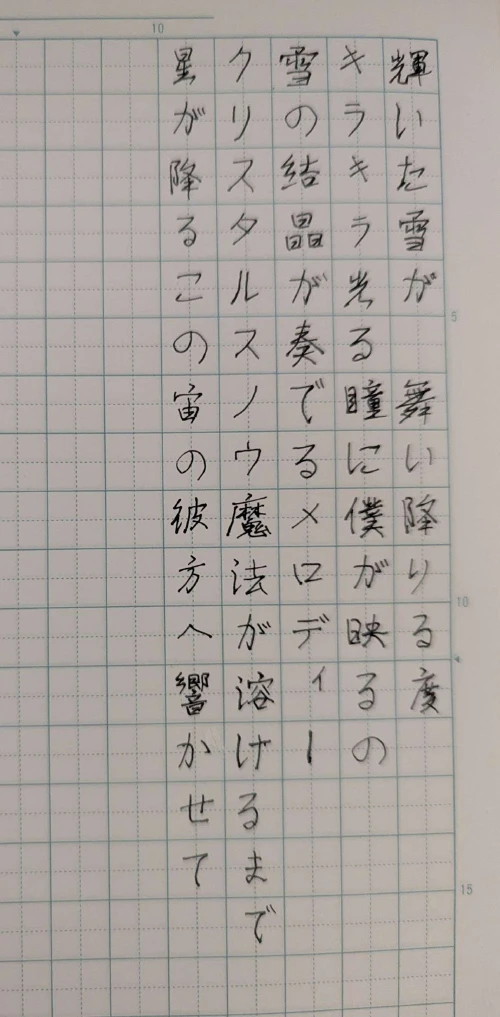 輝いた雪が 舞い降りる度
キラキラ光る瞳に僕が映るの
雪の結晶が奏でるメロディー
クリスタルスノウ魔法が溶けるまで
星がる降るこの宙の彼方へ響かせて
10
5
10
15